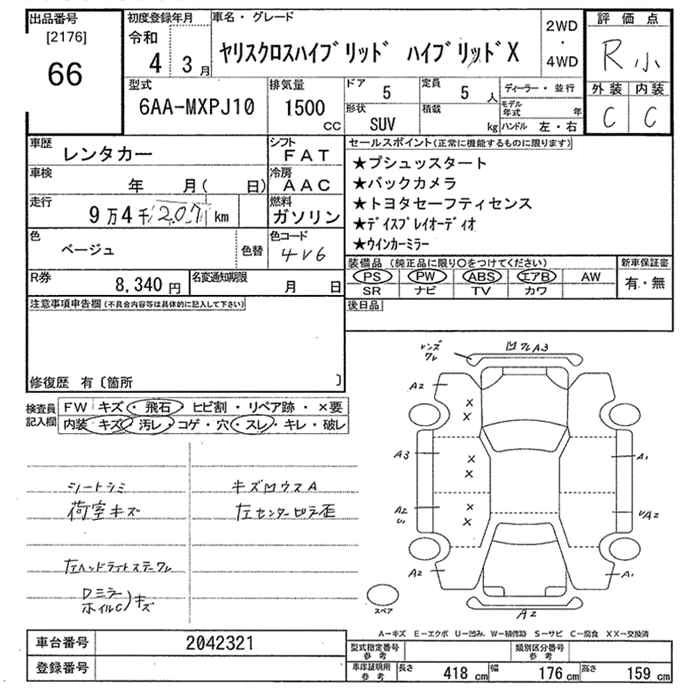 出品番号
[2176]
66
初度登録年月
令和
4 3月
車名・グレード
ヤリスクロスハイブリッド ハイブリッドX
2WD
・
4WD
評価点
R 小
外装 内装
C C
型式
6AA-MXPJ10
排気量
1500
CC
ドア
5
定員
5 人
形状
SUV
積載
kg
ディーラー・並行
モデル年式 年
ハンドル 左・右
車歴
レンタカー
シフト
FAT
車検
年 月( 日)
冷房
AAC
走行
9万4千207km
燃料
ガソリン
色
ベージュ
色替
色コード
4V6
R券
8,340円
名変通知期限
月 日
セールスポイント(正常に機能するものに限ります)
★プシュッスタート
★バックカメラ
★トヨタセーフティセンス
★ディスプレイオーディオ
★ウインカーミラー
装備品 (純正品に限り○をつけてください)
PS PW ABS エアB AW
SR ナビ TV カワ
新車保証書
有・無
後日品
注意事項申告欄(不具合内容等は具体的に記入して下さい)
修復歴 有〔箇所 〕
検査員記入欄
FW キズ・飛石・ヒビ割・リペア跡・×要
内装・キズ・汚レ・コゲ・穴・スレ・キレ・破レ
シートシミ
荷室キズ
左ヘッドライトステーワレ
Dミラー
ホイルC)キズ
キズ凹ウスA
左センターピラ歪
レンズ
ワレ
凹ワレA3
A2
A3
A2
A2
A1
A2
A1
A2
スペア
A−キズ E−エクボ U−凹み W−補修跡 S−サビ C−腐食 XX−交換済
車台番号
2042321
登録番号
型式指定番号
参考
類別区分番号
参考
車庫証明用
参考
長さ 418cm 幅 176cm 高さ 159cm